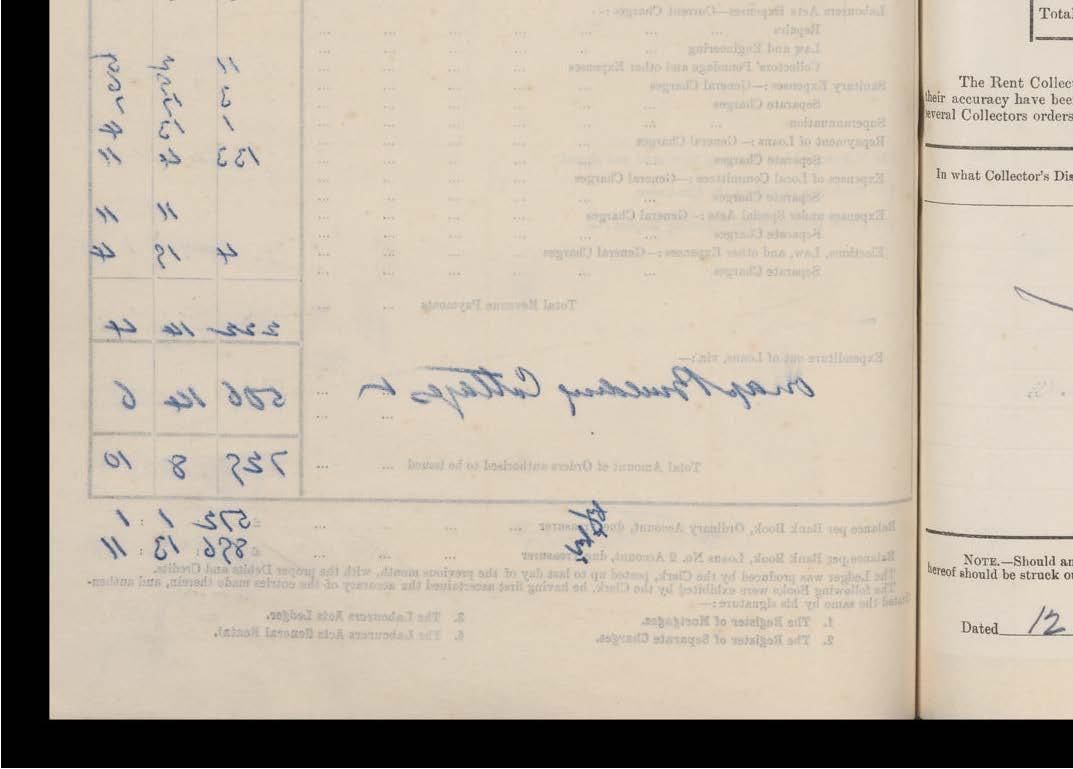 Labourers Acts Expenses—Current Charges:—
Repairs
Law and Engineering
Collectors' Poundage and other Expenses
Sanitary Expenses:—General Charges
Separate Charges
Superannuation
Repayment of Loans:—General Charges
Separate Charges 133 4 11
Expenses of Local Committees:—General Charges
Separate Charges
Expenses under Special Acts:—General Charges
Separate Charges
Elections, Law, and other Expenses:—General Charges 4 15 4
Separate Charges
Total Revenue Payments 222 14 4
Expenditure out of Loans, viz.:—
Building Cottages 506 14 6
Total Amount of Orders authorised to be issued 729 8 10
Balance per Bank Book, Ordinary Account, due Treasurer 572 : 1 : 1
Balance per Bank Book, Loans No. 2 Account, due Treasurer 856 : 13 : 11
The Ledger was produced by the Clerk, posted up to last day of the previous month, with the proper Debits and Credits.
The following Books were exhibited by the Clerk, he having first ascertained the accuracy of the entries made therein, and authen-
ticated the same by his signature:—
1. The Register of Mortgages.
2. The Register of Separate Charges.
3. The Labourers Acts Ledger.
6. The Labourers Acts General Rental.
Total
The Rent Collec
their accuracy have bee
several Collectors orders
In what Collector's Dis
NOTE.—Should an
hereof should be struck ou
Dated 12